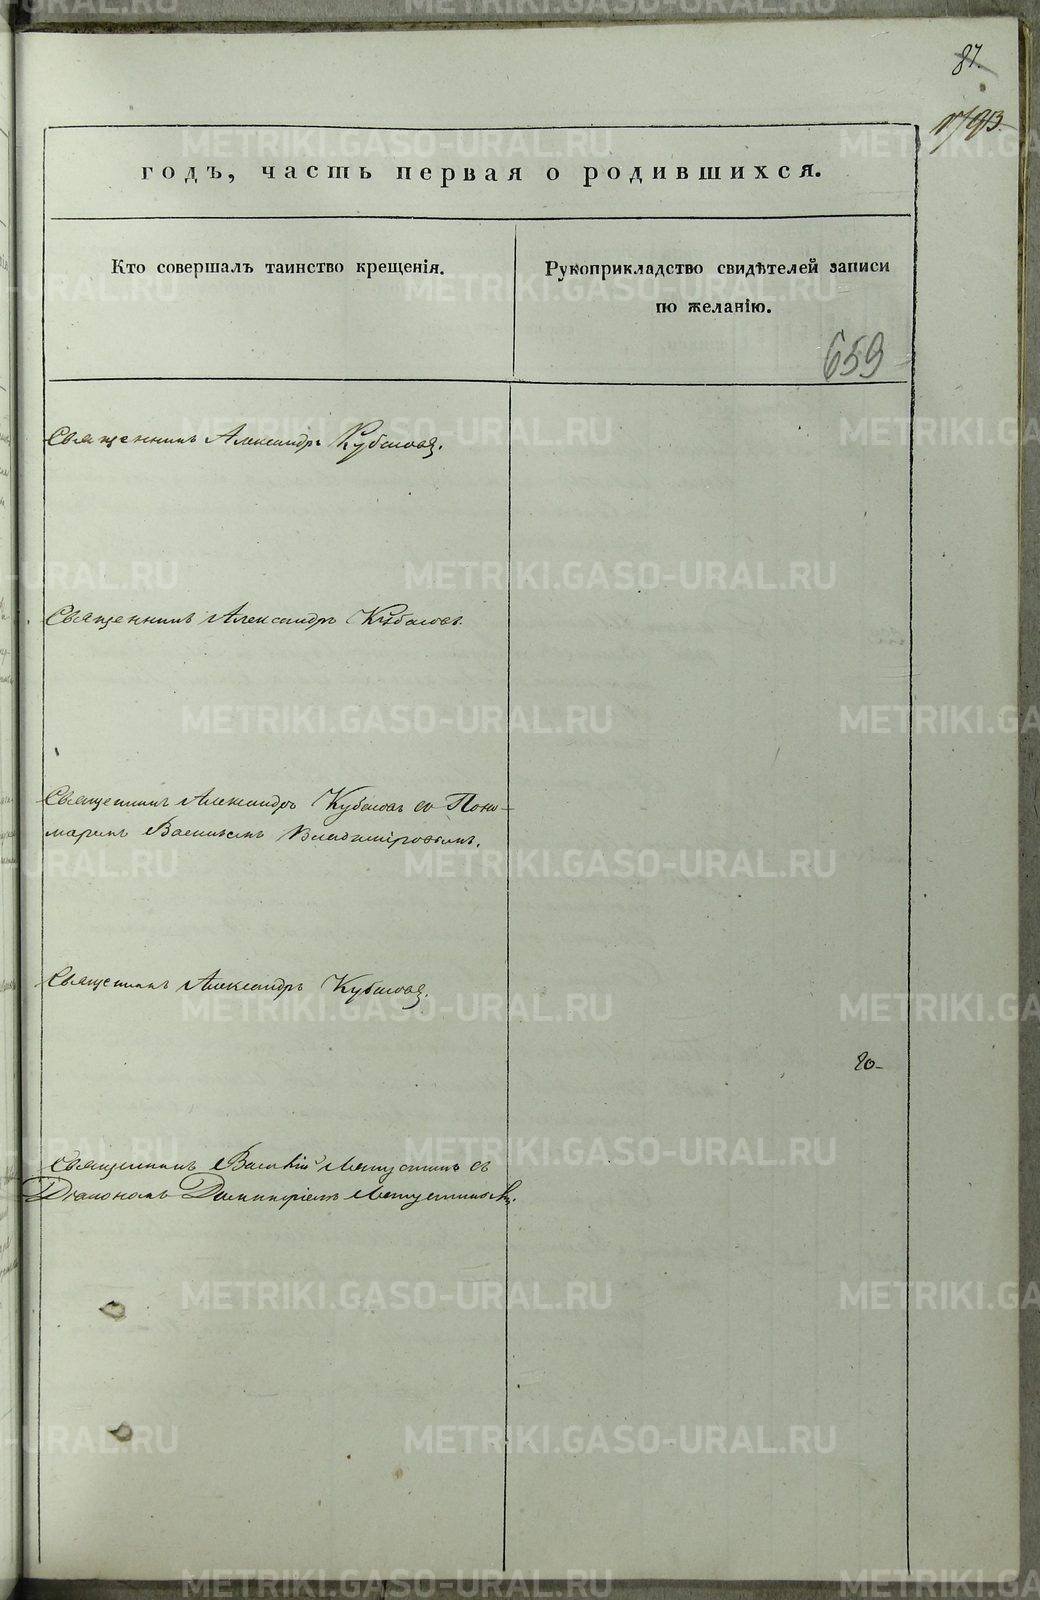 87.
годъ, часть первая о родившихся.
Кто совершалъ таинство крещенія.
Рукоприкладство свидѣтелей записи
по желанію.
659
Священникъ Александръ Кубасовъ.
Священникъ Александръ Кубасовъ.
Священникъ Александръ Кубасовъ съ Поно-
маремъ Василіемъ Владиміровымъ.
Священникъ Александръ Кубасовъ.
20
Священникъ Василій съ
Діакономъ Димитріемъ
METRIKI.GASO-URAL.RU